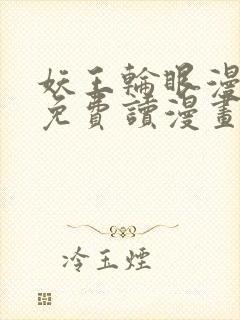 妖王輪眼漫
免費讀漫畫
冷玉煙